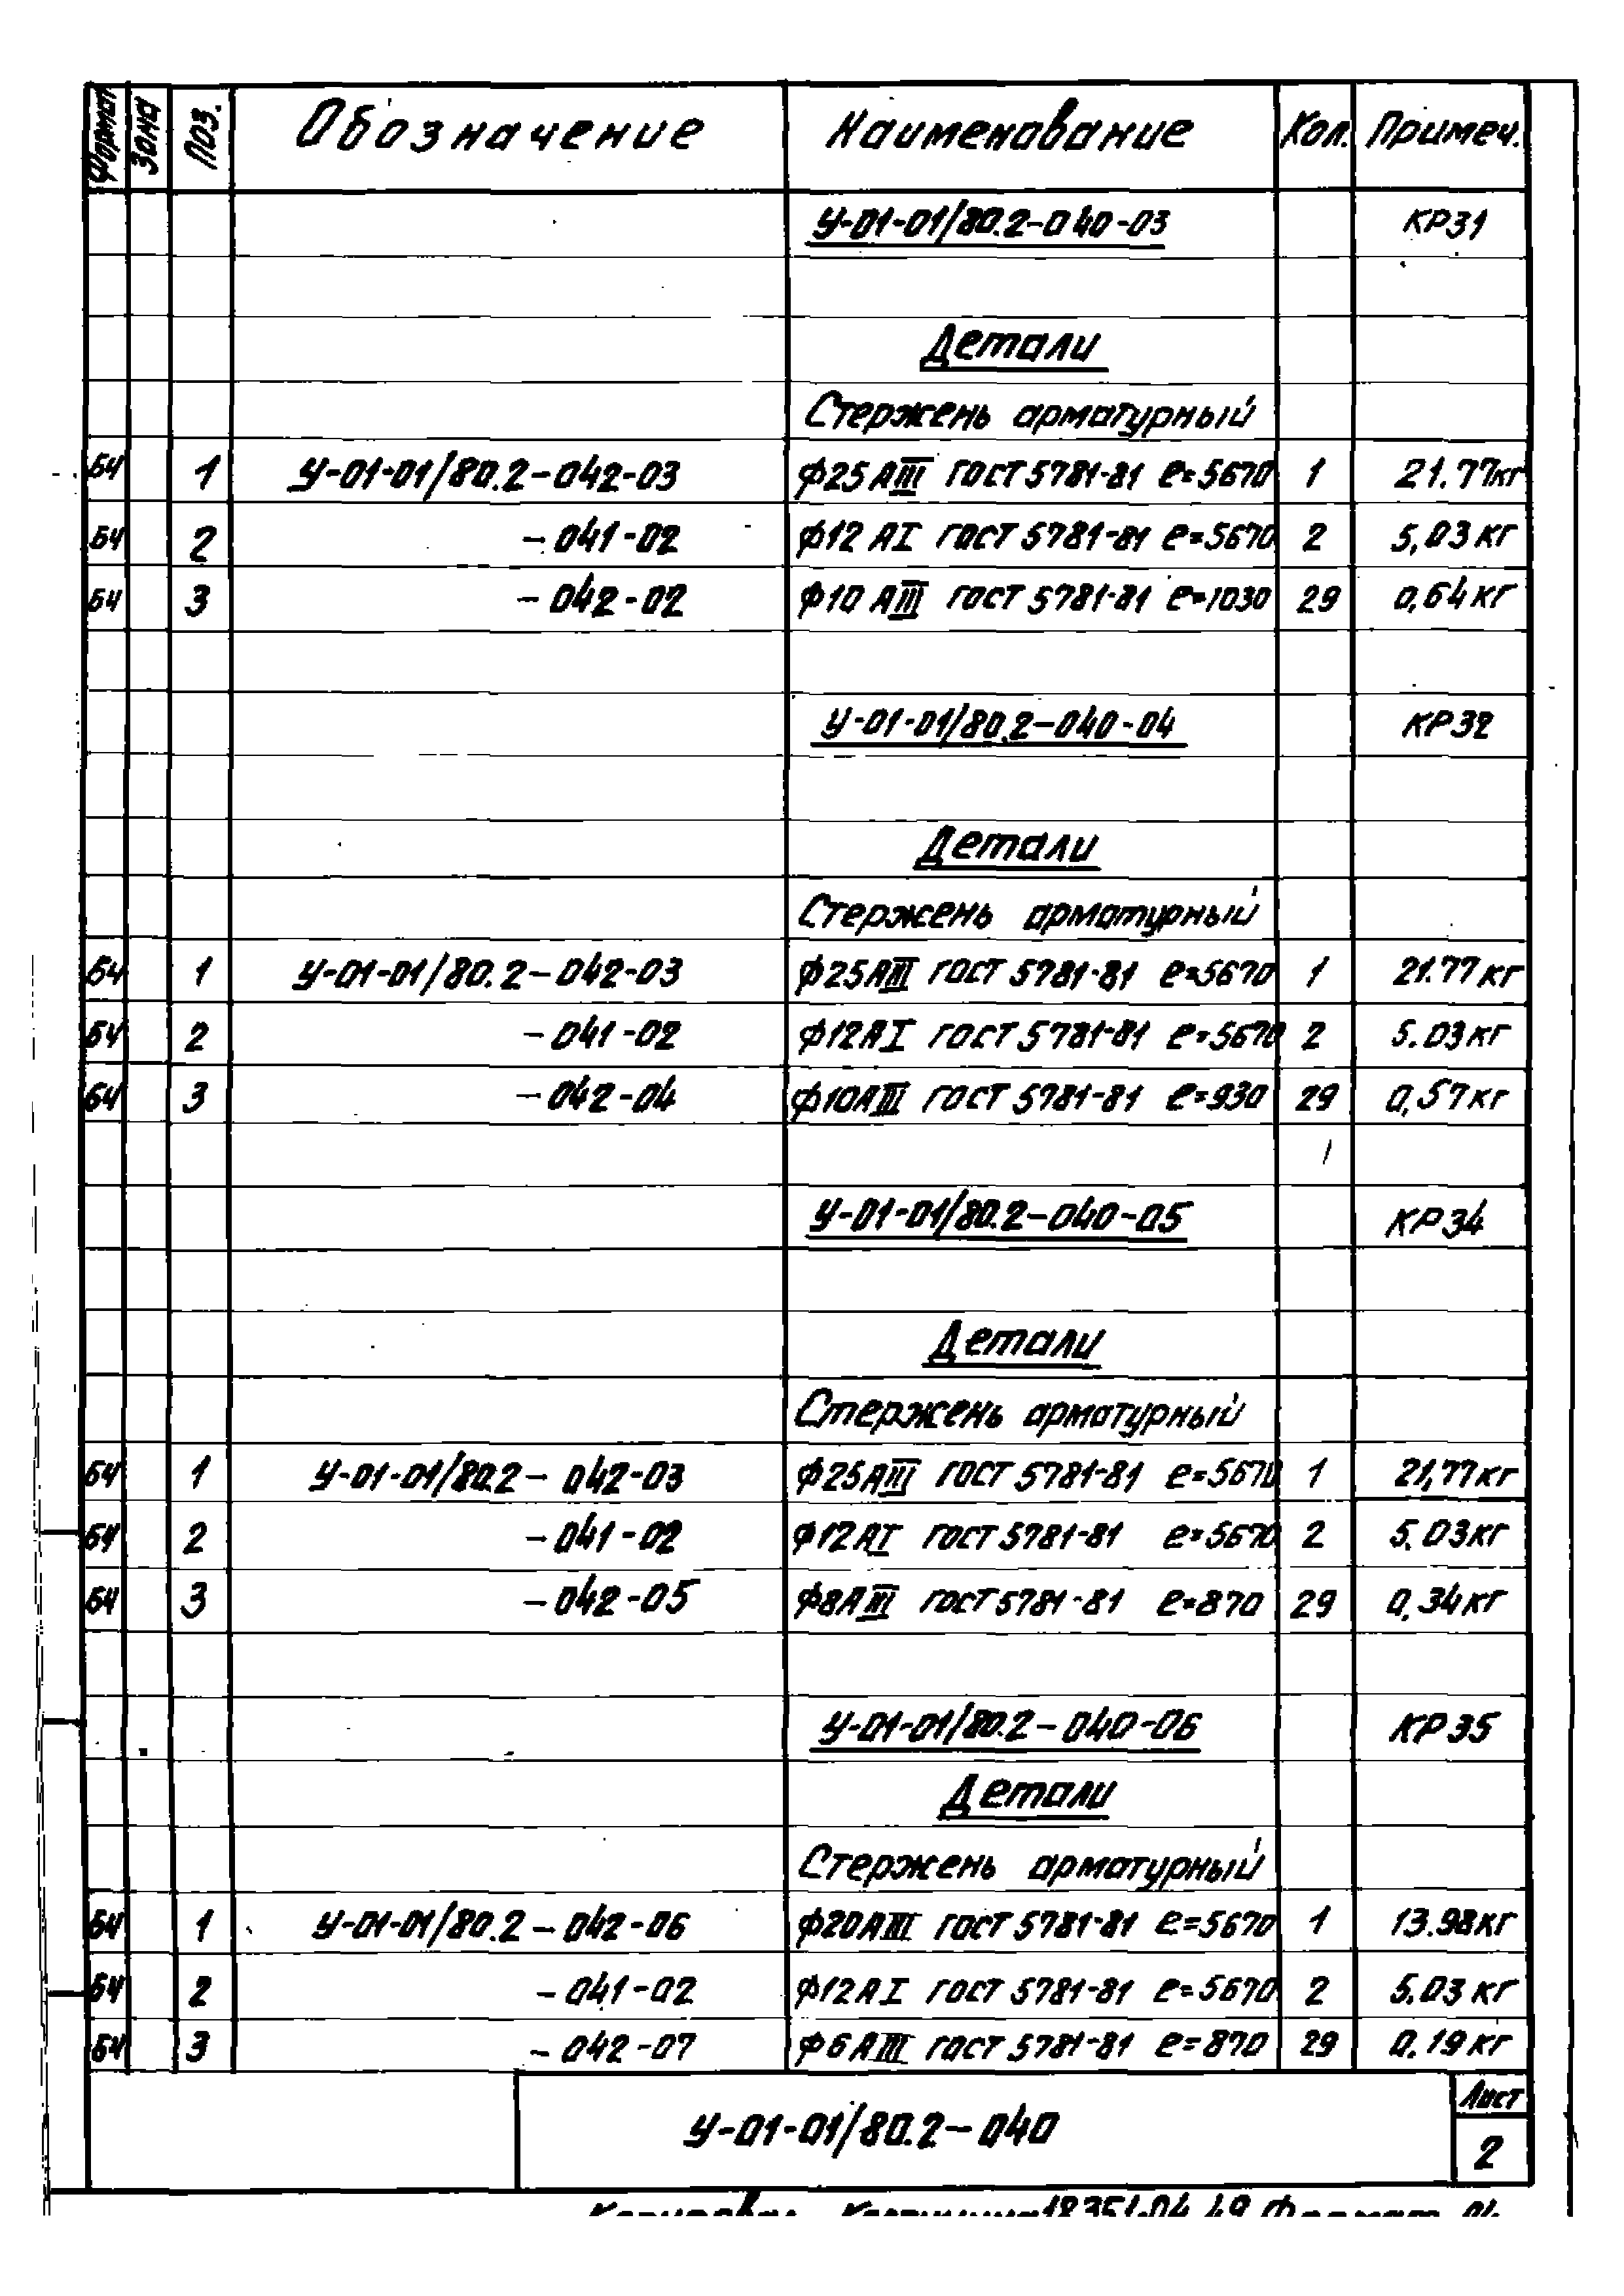 Формат Зона Поз. Обозначение Наименование Кол. Примеч.
У-01-01/80.2-040-03 КР31
Детали
Стержень арматурный
БЧ 1 У-01-01/80.2-042-03 Ф25АIII ГОСТ 5781-81 ℓ=5670 1 21.77кг
БЧ 2 -041-02 Ф12 АI ГОСТ 5781-81 ℓ=5670 2 5,03 кг
БЧ 3 -042-02 Ф10 АIII ГОСТ 5781-81 ℓ=1030 29 0,64 кг
У-01-01/80.2-040-04 КР32
Детали
Стержень арматурный
БЧ 1 У-01-01/80.2-042-03 Ф25АIII ГОСТ 5781-81 ℓ=5670 1 21.77 кг
БЧ 2 -041-02 Ф12АI ГОСТ 5781-81 ℓ=5670 2 5.03кг
БЧ 3 -042-04 Ф10АIII ГОСТ 5781-81 ℓ=930 29 0,57кг
У-01-01/80.2-040-05 КР34
Детали
Стержень арматурный
БЧ 1 У-01-01/80.2-042-03 Ф25АIII ГОСТ 5781-81 ℓ=5670 1 21,77кг
БЧ 2 -041-02 Ф12АI ГОСТ 5781-81 ℓ=5670 2 5.03кг
БЧ 3 -042-05 Ф8АIII ГОСТ 5781-81 ℓ=870 29 0,34кг
У-01-01/80.2-040-06 КР35
Детали
Стержень арматурный
БЧ 1 У-01-01/80.2-042-06 Ф20АIII ГОСТ 5781-81 ℓ=5670 1 13.98кг
БЧ 2 -041-02 Ф12АI ГОСТ 5781-81 ℓ=5670 2 5.03 кг
БЧ 3 -042-07 Ф6АIII ГОСТ 5781-81 ℓ=870 29 0.19кг
У-01-01/80.2-040
Лист
2
18351-04 49 Формат